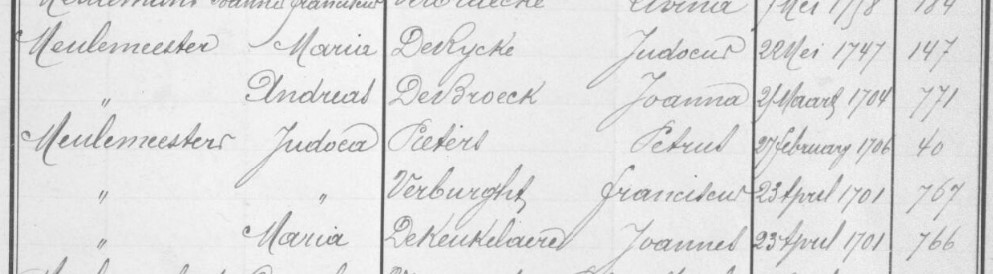 Joanna Franciscus Anna Mei 184
Meulemeester Maria DeRycke Judocus 22 Mei 1747 147
" Andreas DeBroeck Joanna 21 Maart 1704 771
Meulemeesters Judoca Pieters Petrus 27 february 1706 40
" " Verburght franciscus 23 April 1701 767
" Maria DeKeukelaere Joannes 23 April 1701 766